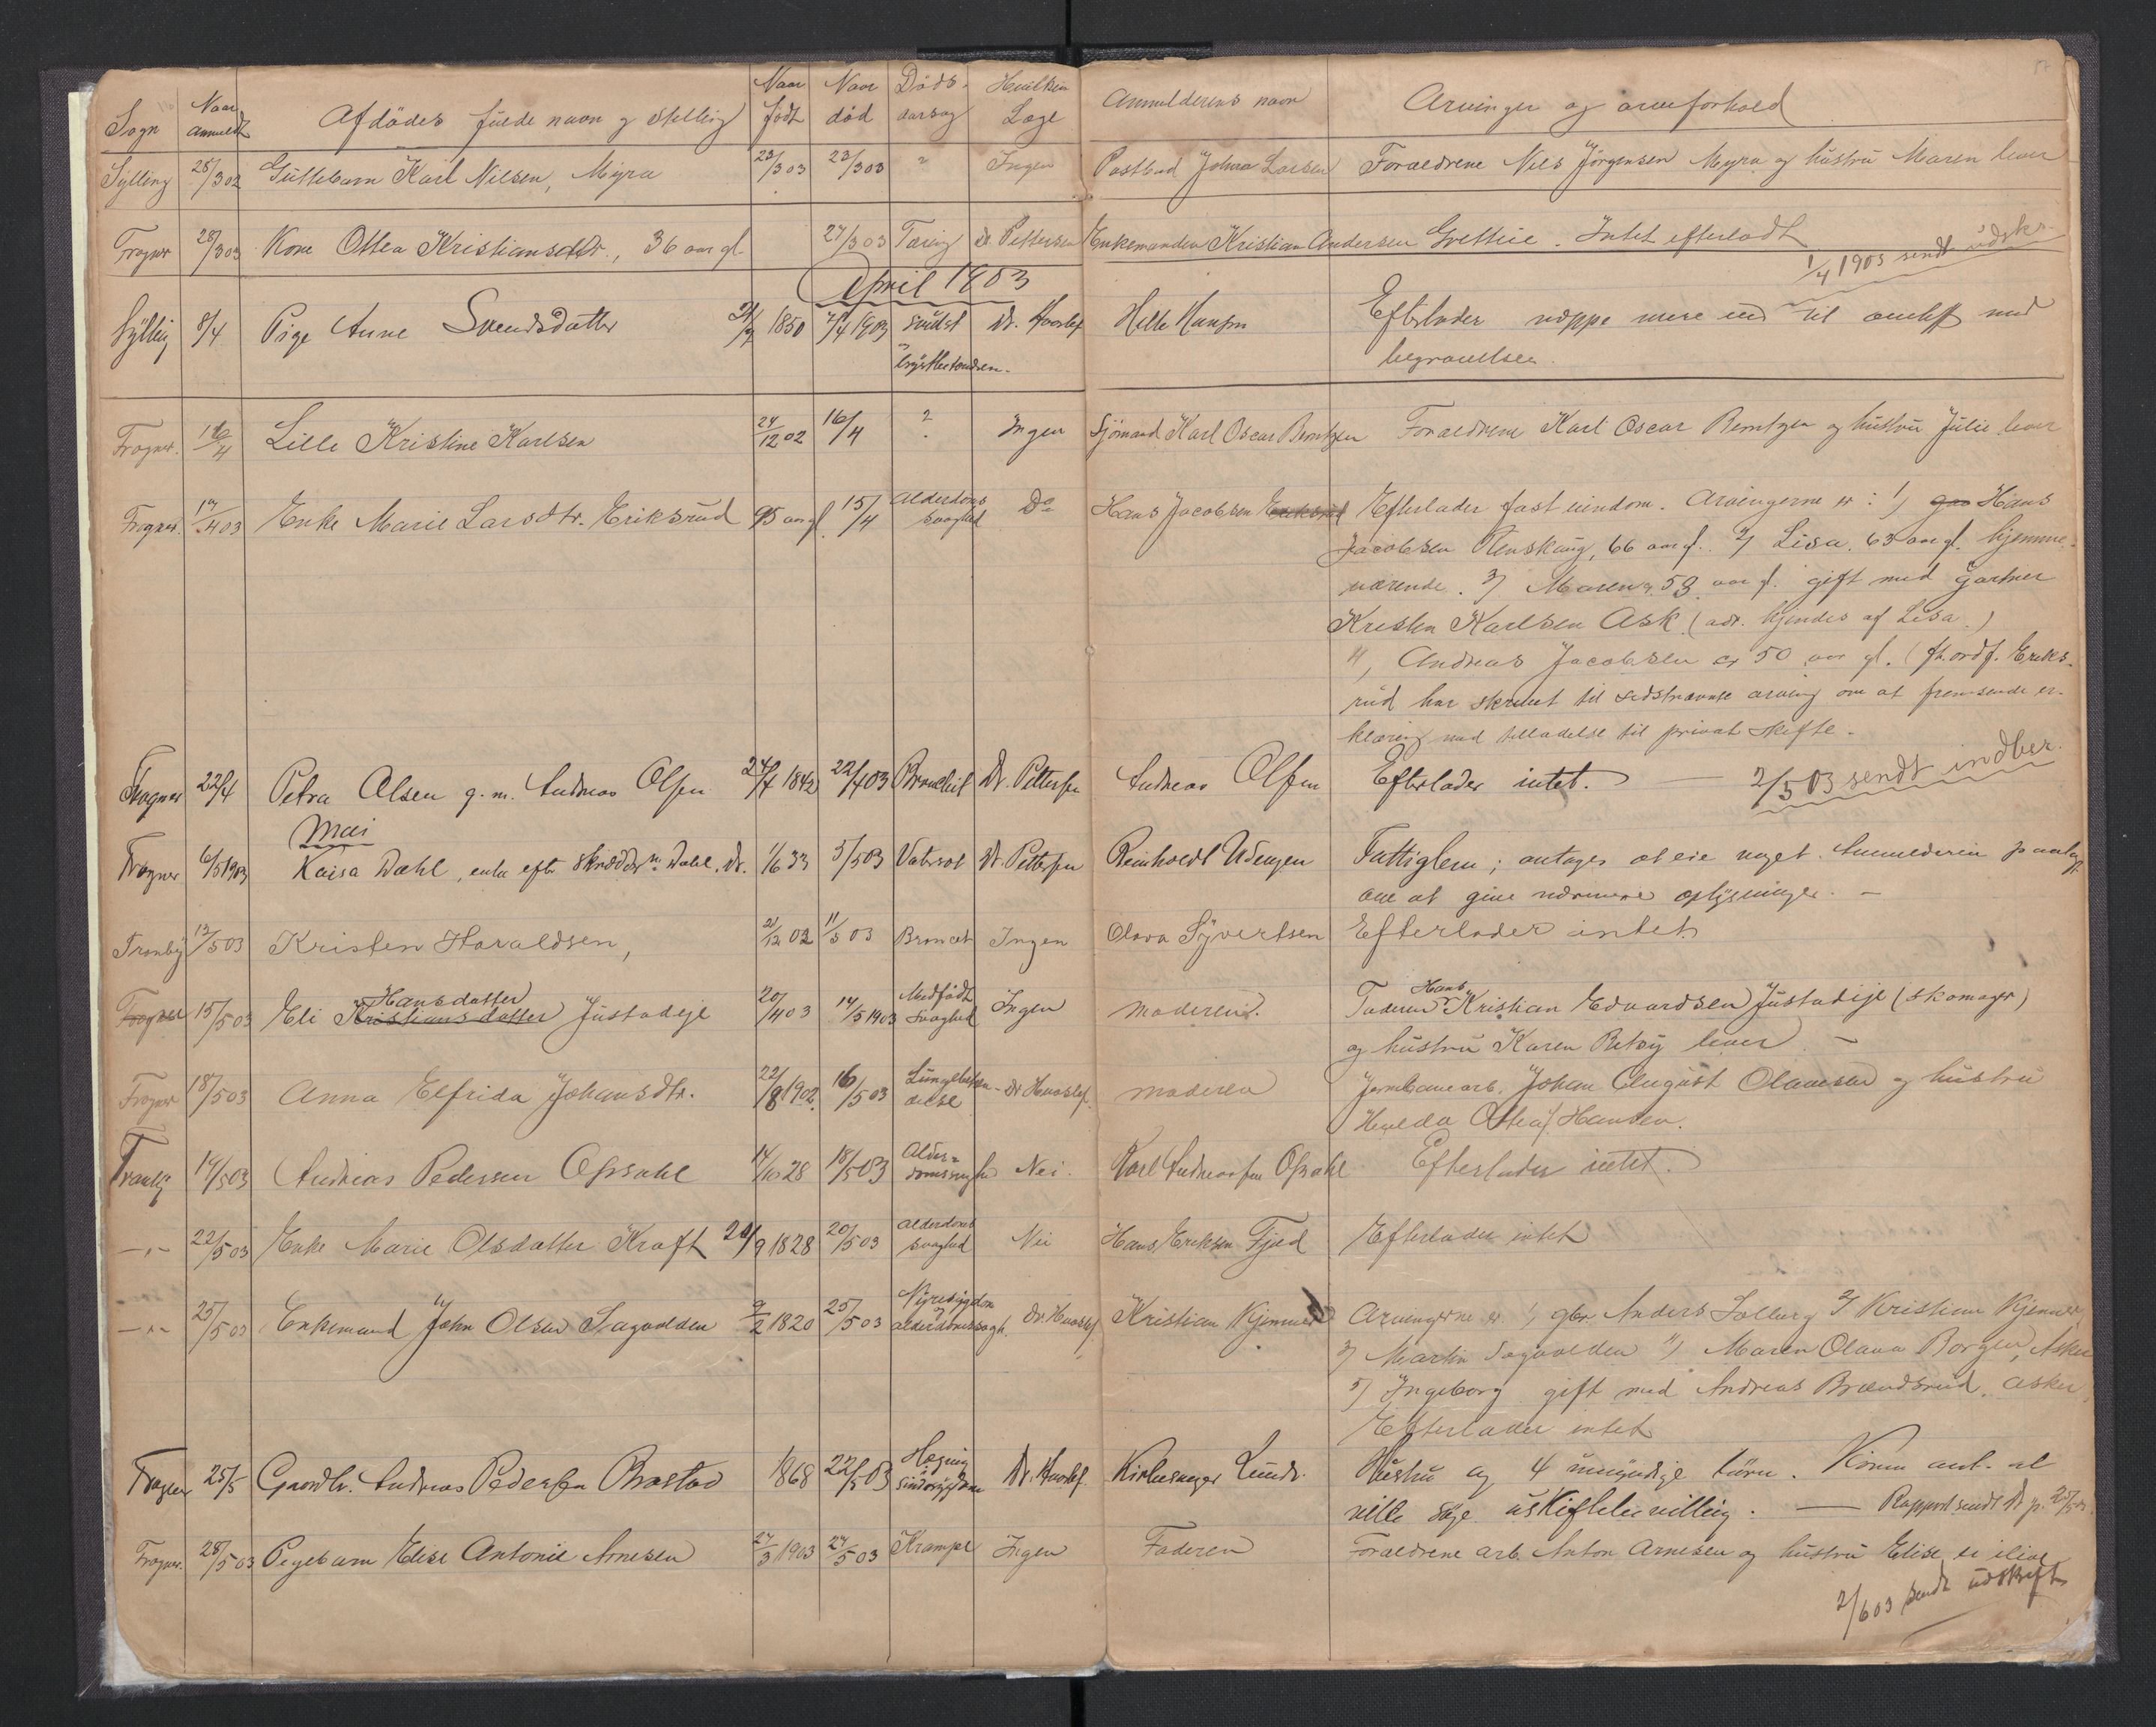 Sogn Naar anmeldt Afdödes fulde navn og stilling Naar födt Naar död Döds-aarsag Hvilken Læge Anmelderens navn Arvinger og arveforhold
Sylling 28/3 02 Guttebarn Karl Nilsen, Myra 23/3 03 23/3 03 " Ingen Postbud Johan Larsen Forældrene Nils Jörgensen Myra og hustru Maren lever
Frogner 28/3 03 Kone Ottea Kristiansdtr., 36 aar gl. 27/3 03 Tæring Dr. Pettersen Enkemanden Kristian Andersen Intet efterladt
1/4 1903 sendt udskr.
April 1903
Sylling 8/4 Pige Anne Svendsdatter 1850 /4 1903 Dr. Haaslef Helle Hansen Efterlader neppe mere end til med
begravelsen.
Frogner. 16/4 Lille Kristine Karlsen 24/12 02 16/4 ? Ingen Sjömand Karl Oscar Berntzen Forældrene Karl Oscar Berntzen og hustru Julie lever
Frogner. /4 03 Enke Marie Larsdtr. Eriksrud 95 aar gl. 15/4 Alderdoms svaghed Do Hans Jacobsen Eriksrud Efterlader fast eiendom. Arvingerne er: 1) gaa Hans
Jacobsen 66 aar gl. 2) Lisa. 63 aar gl. hjemme-
værende. 3) Maren 53 aar gl. gift med gartner
Kristen Karlsen Ask (adr. kjendes af Lisa.)
4, Andreas Jacobsen er 50 aar gl. (fh. ordf. Eriks-
rud har skrevet til sidstnævnte arving om at fremsende er-
klæring med tilladelse til privat skifte.
Frogner 22/4 Petra Olsen g. m. Andreas Olsen 24/4 1842 22/4 03 Bronchit Dr. Pettersen Andreas Olsen Efterlader intet. — 2/5 03 sendt indber.
Mai
Frogner 6/5 1903 Kaisa Dahl, enke efter Skrædder Dahl, Dr. 1/6 33 5/5 03 Vatersot Dr. Pettersen Reinholdt Udengen Fattiglem; antages at eie noget. Anmelderen paalagt
om at give nærmere oplysninger. —
Tranby 12/5 03 Kristen Haraldsen, 21/12 02 11/5 03 Broncit Ingen Olava Syvertsen Efterlader intet
Frogner 15/5 03 Eli Kristiansdatter Hansdatter Justadeje 20/4 03 14/5 1903 Medfödt Svaghed Ingen Moderen. Faderen Hans Kristian Edvardsen Justadeje (skomager)
og hustru Karen Betsy lever —
Frogner 18/5 03 Anna Elfrida Johansdtr. 22/8 1902. 16/5 03 Lungebetændelse Dr Haaslef. Moderen Jernbanearb. Johan August Olavesen og hustru
Hulda Ottea f. Hansen.
Tranby 19/5 03 Andreas Pedersen Opsahl 14/10 28 18/5 03 Alder-domssvaghed Nei. Karl Andreassen Opsahl Efterlader intet.
—"— 22/5 03 Enke Marie Olsdatter Kraft 20/9 1828 20/5 03 Alderdoms svaghed Nei Hans Eriksen Fjeld Efterlader intet
—"— 25/5 03 Enkemand John Olsen Sagvolden 9/2 1820 25/5 03 Nyresygdom & alderdomssvagh. Dr. Haaslef Kristian Kjenner Arvingerne er 1, gbr. Anders Solberg 2) Kristian Kjenner
3) Martin Sagvolden 4) Maren Olava Borgen, Asker
5) Ingeborg gift med Andreas Brændsrud, Asker
Efterlader intet
Frogner 25/5 Gaardbr. Andreas Pedersen Brastad 1868 22/5 03 sindssygdom Dr. Haaslef. Kirkesanger Lunde. Hustru og 4 umyndige börn. Konen ant. at
ville söge uskiftebevilling. — Rapport sendt 25/5 03.
Frogner. 28/5 03 Pigebarn Elise Antonie Arnesen 27/3 1903 24/5 03 Krampe Ingen Faderen Forældrene arb. Anton Arnesen og hustru Elise er ilive
2/6 03 sendt udskrift